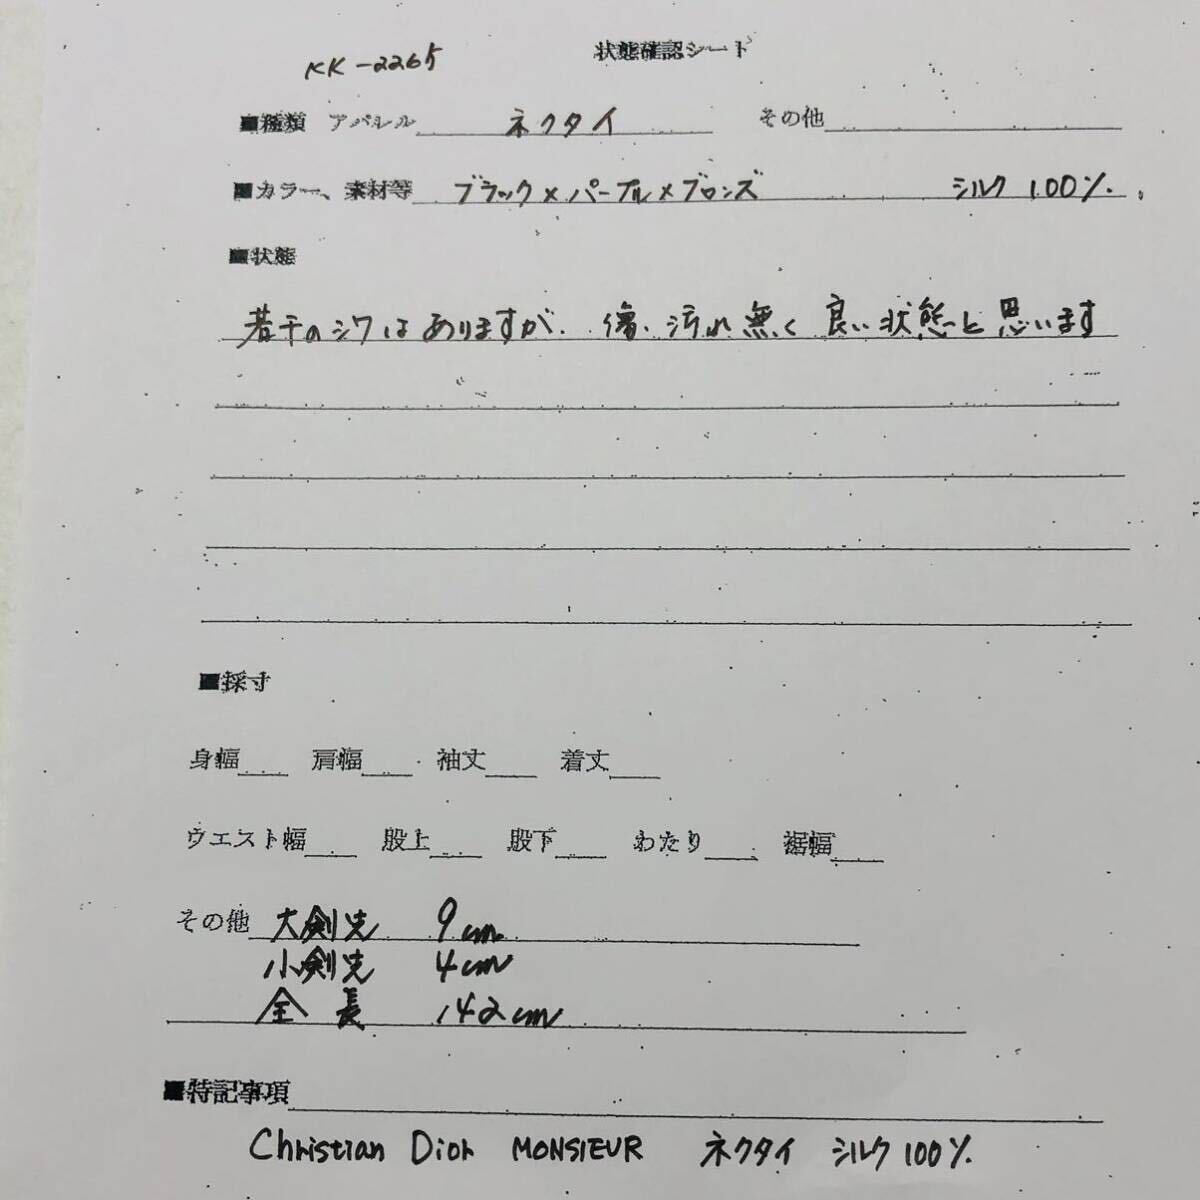 KK-2265
状態確認シート
■種類 アパレル ネクタイ その他
■カラー、素材等 ブラック×パープル×ブロンズ シルク 100%.
■状態
若干のシワはありますが、傷、汚れ無く良い状態と思います
■採寸
身幅 肩幅 袖丈 着丈
ウエスト幅 股上 股下 わたり 裾幅
その他 大剣先 9cm
小剣先 4cm
全長 142cm
■特記事項
Christian Dior MONSIEUR ネクタイ シルク100%.